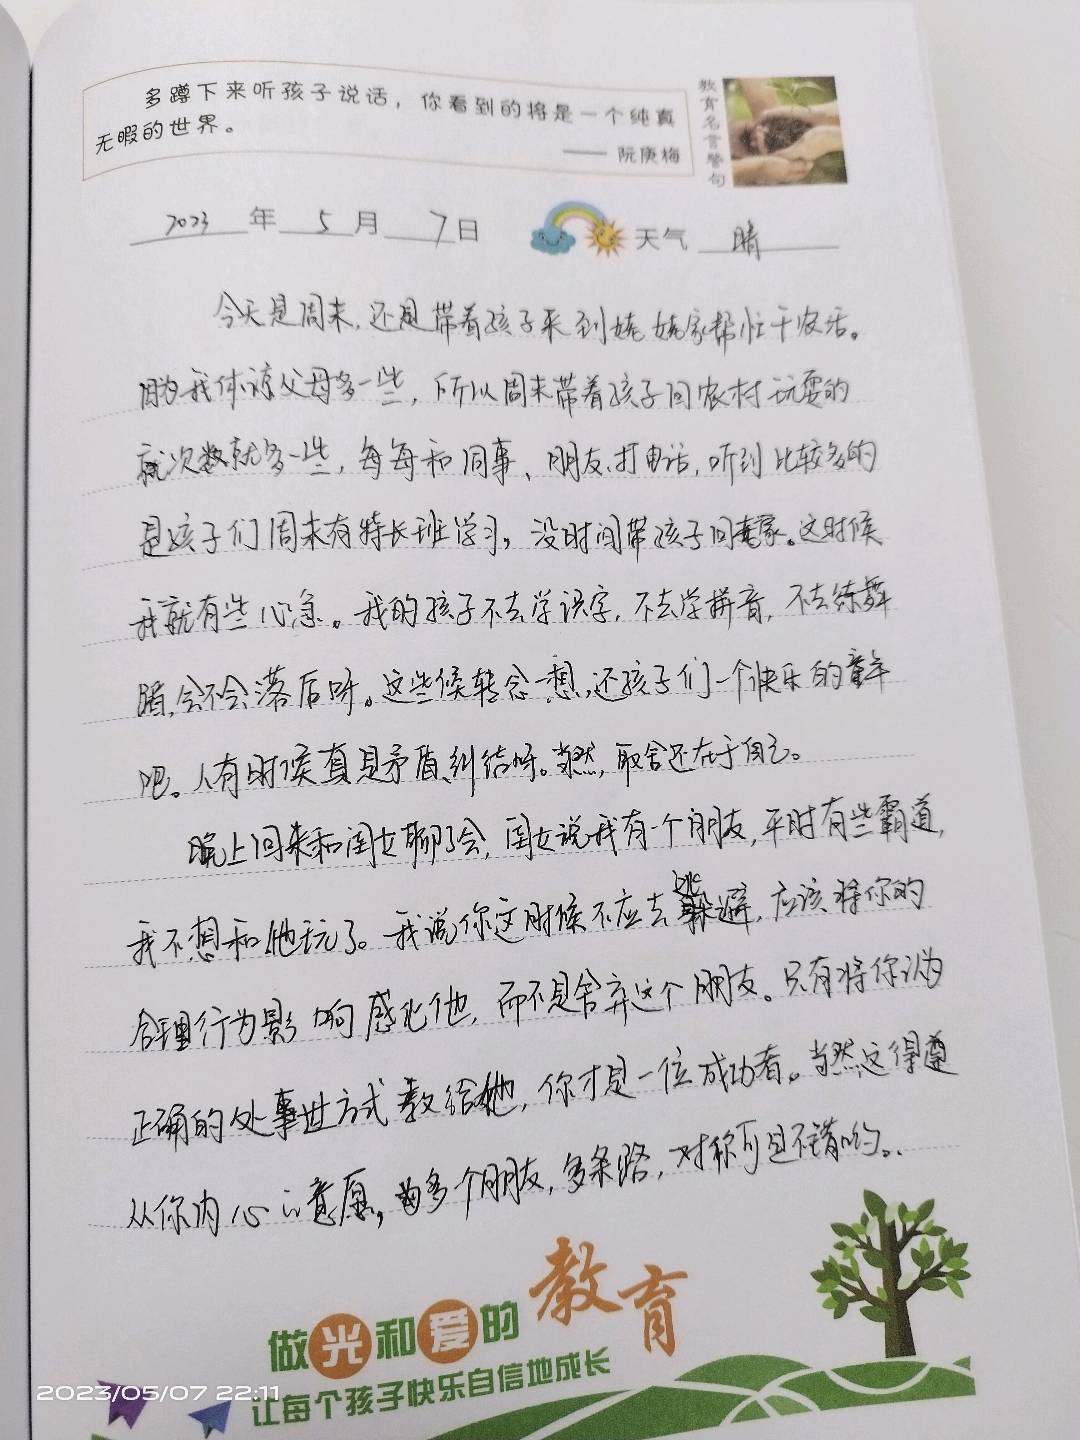 多蹲下来听孩子说话，你看到的将是一个纯真
无暇的世界。
—— 阮庚梅
教育名言警句
2023年5月7日 天气 晴
今天是周末，还是带着孩子来到姥姥家帮忙干农活。
因为我体谅父母多一些，所以周末带着孩子回农村玩耍的
就次数就多一些，每每和同事、朋友打电话，听到比较多的
是孩子们周末有特长班学习，没时间带孩子回老家。这时候
我就有些心急。我的孩子不去学识字，不去学拼音，不去练舞
蹈，会不会落后呀。这些候转念一想，还孩子们一个快乐的童年
吧。人有时候真是矛盾、纠结呀。当然，取舍还在于自己。
晚上回来和闺女聊了会，闺女说我有一个朋友，平时有些霸道，
我不想和他玩了。我说你这时候不应去逃避，应该将你的
合理行为影响感化他，而不是舍弃这个朋友。只有将你认为
正确的处事世方式教给她，你才是一位成功者。当然，这得遵
从你内心的意愿，多个朋友，多条路，对称可是不错的哟。
做光和爱的教育
让每个孩子快乐自信地成长
2023/05/07 22:11